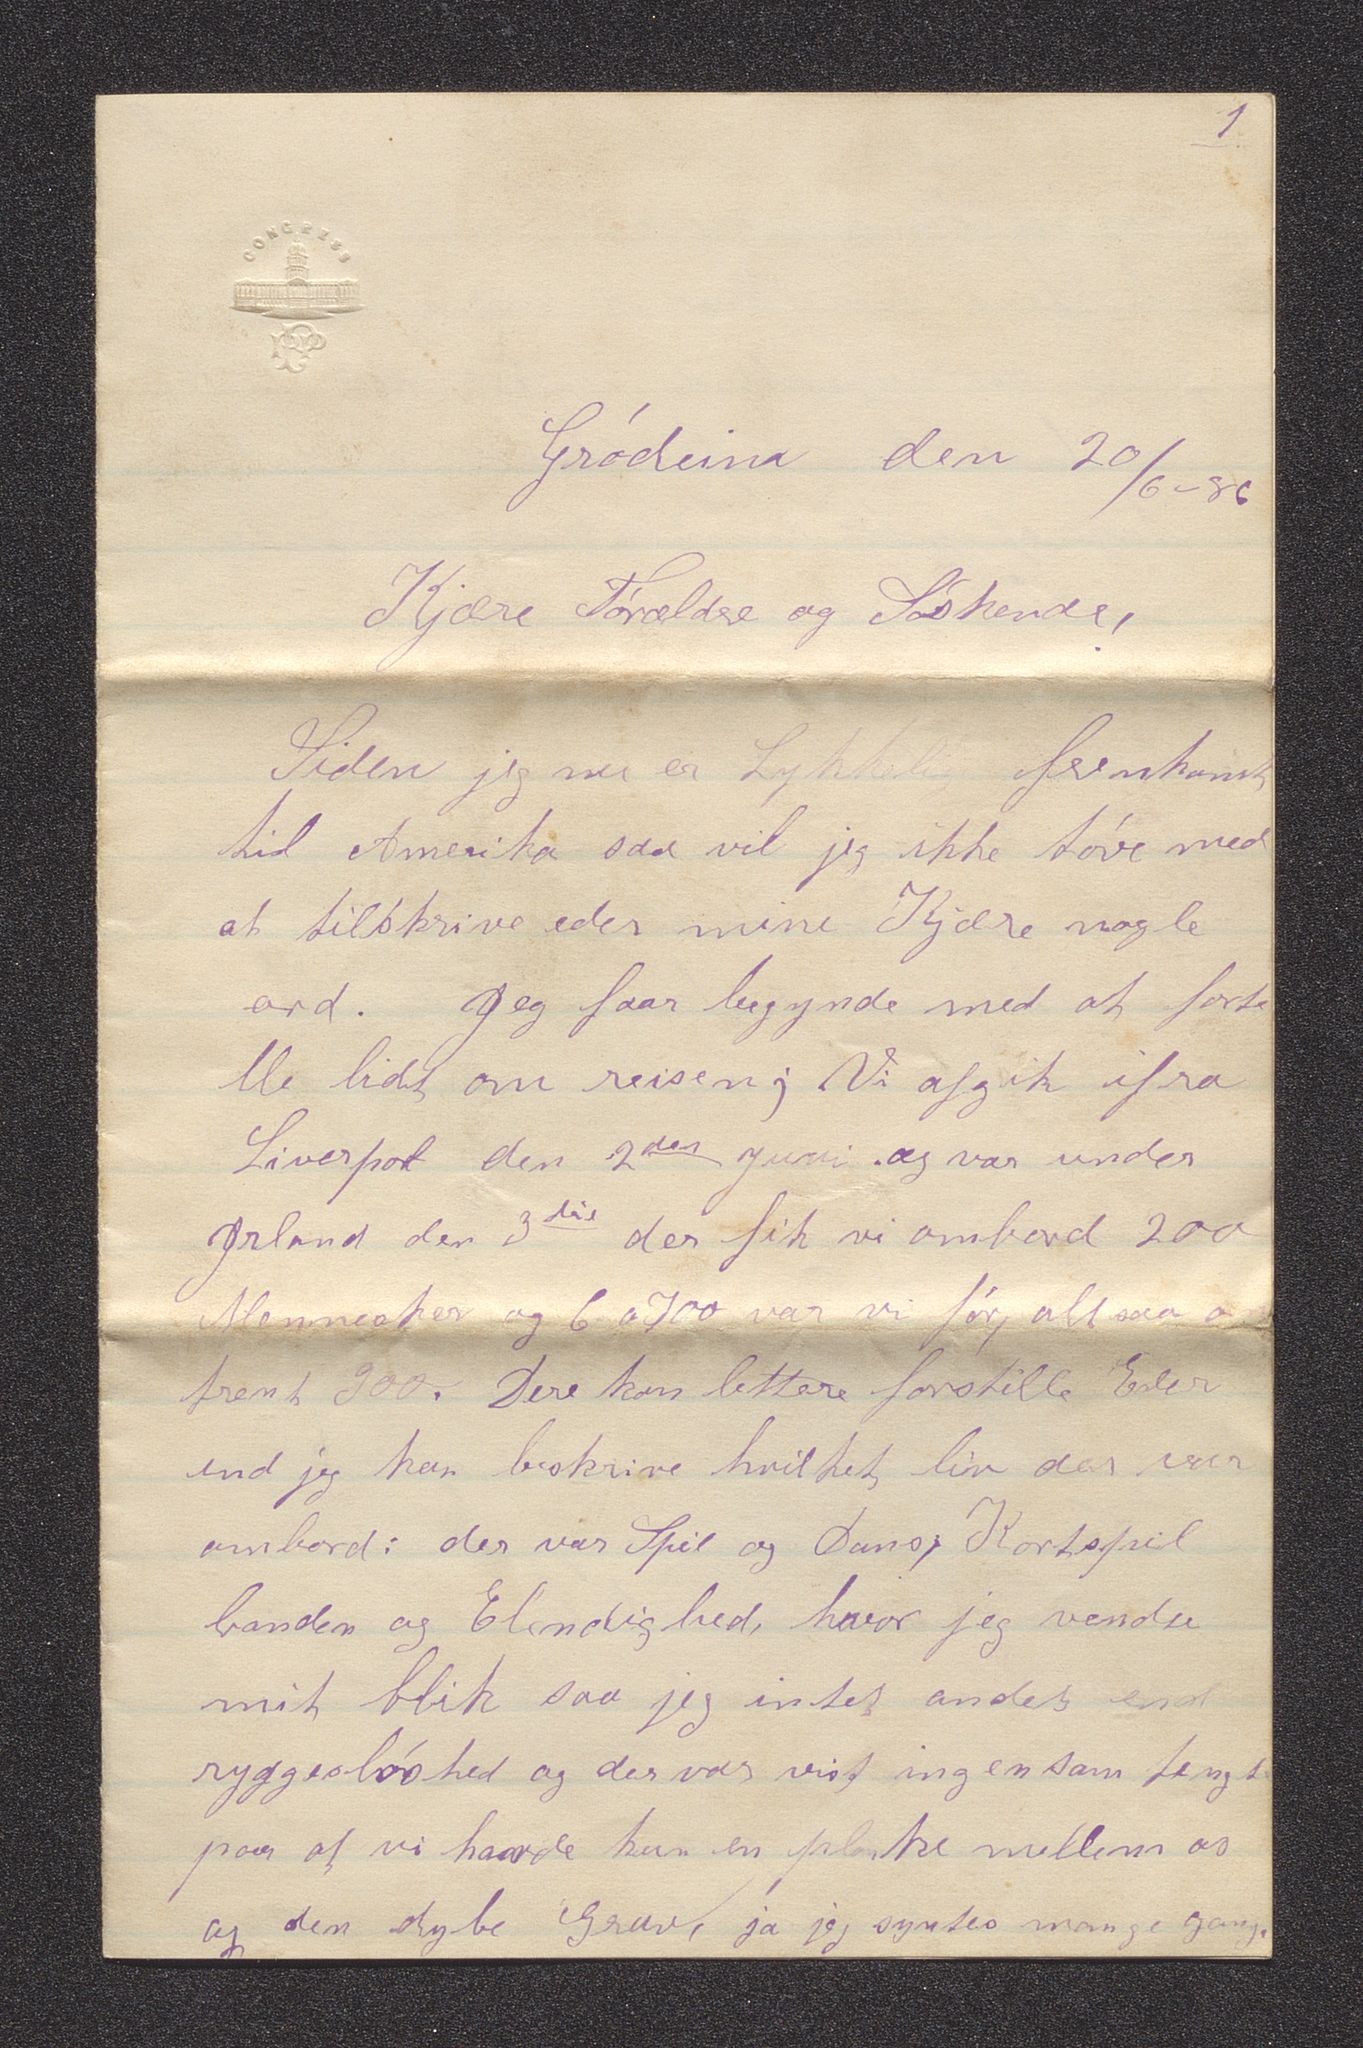 1
CONGRESS
Gródeina den 20/6-86
Kjære Forældre og Söskende,
Siden jeg nu er Lykkelig fremkomt
til Amerika saa vil jeg ikke tóve med
at tilskrive eder mine Kjære nogle
ord. Jeg faar begynde med at forte
lle lidt om reisen; Vi afgik ifra
Liverpol den 2den Juni og var under
Irland den 3die der fik vi ombord 200
Mennesker og 6 a 700 var vi fór, altsaa o
trent 900. Dere kan lettere forstille Eder
end jeg kan beskrive hvilket liv der var
ombord: der var Spil og Dans, Kortspil
banden og Elendighed, hvor jeg vendte
mit blik saa jeg intet andet end
ryggeslóshed og der var vist ingen som tengte
paa at vi havde kun en planke mellem os
og den dybe Grav, ja jeg syntes mange gang.